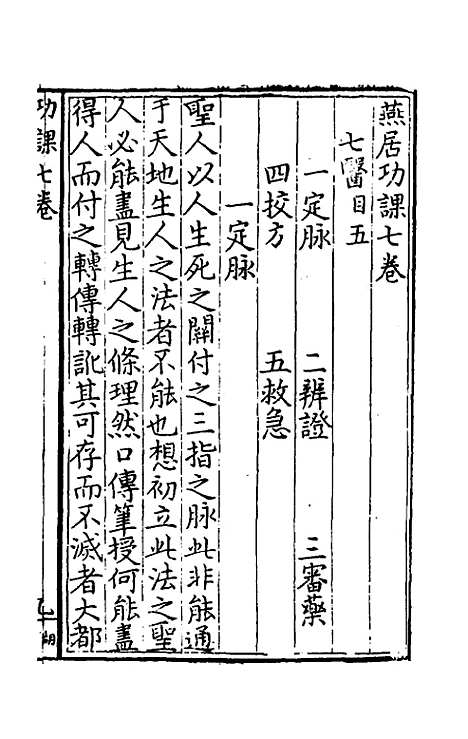 燕居功課七卷
七醫目五
一定脉 二辨證 三審藥
四按方 五救急
一定脉
聖人以人生死之關付之三指之脉此非能通
于天地生人之法者不能也想初立此法之聖
人必能盡見生人之條理然口傳筆授何能盡
得人而付之轉傳轉訛其可存而不滅者大都
功課七卷